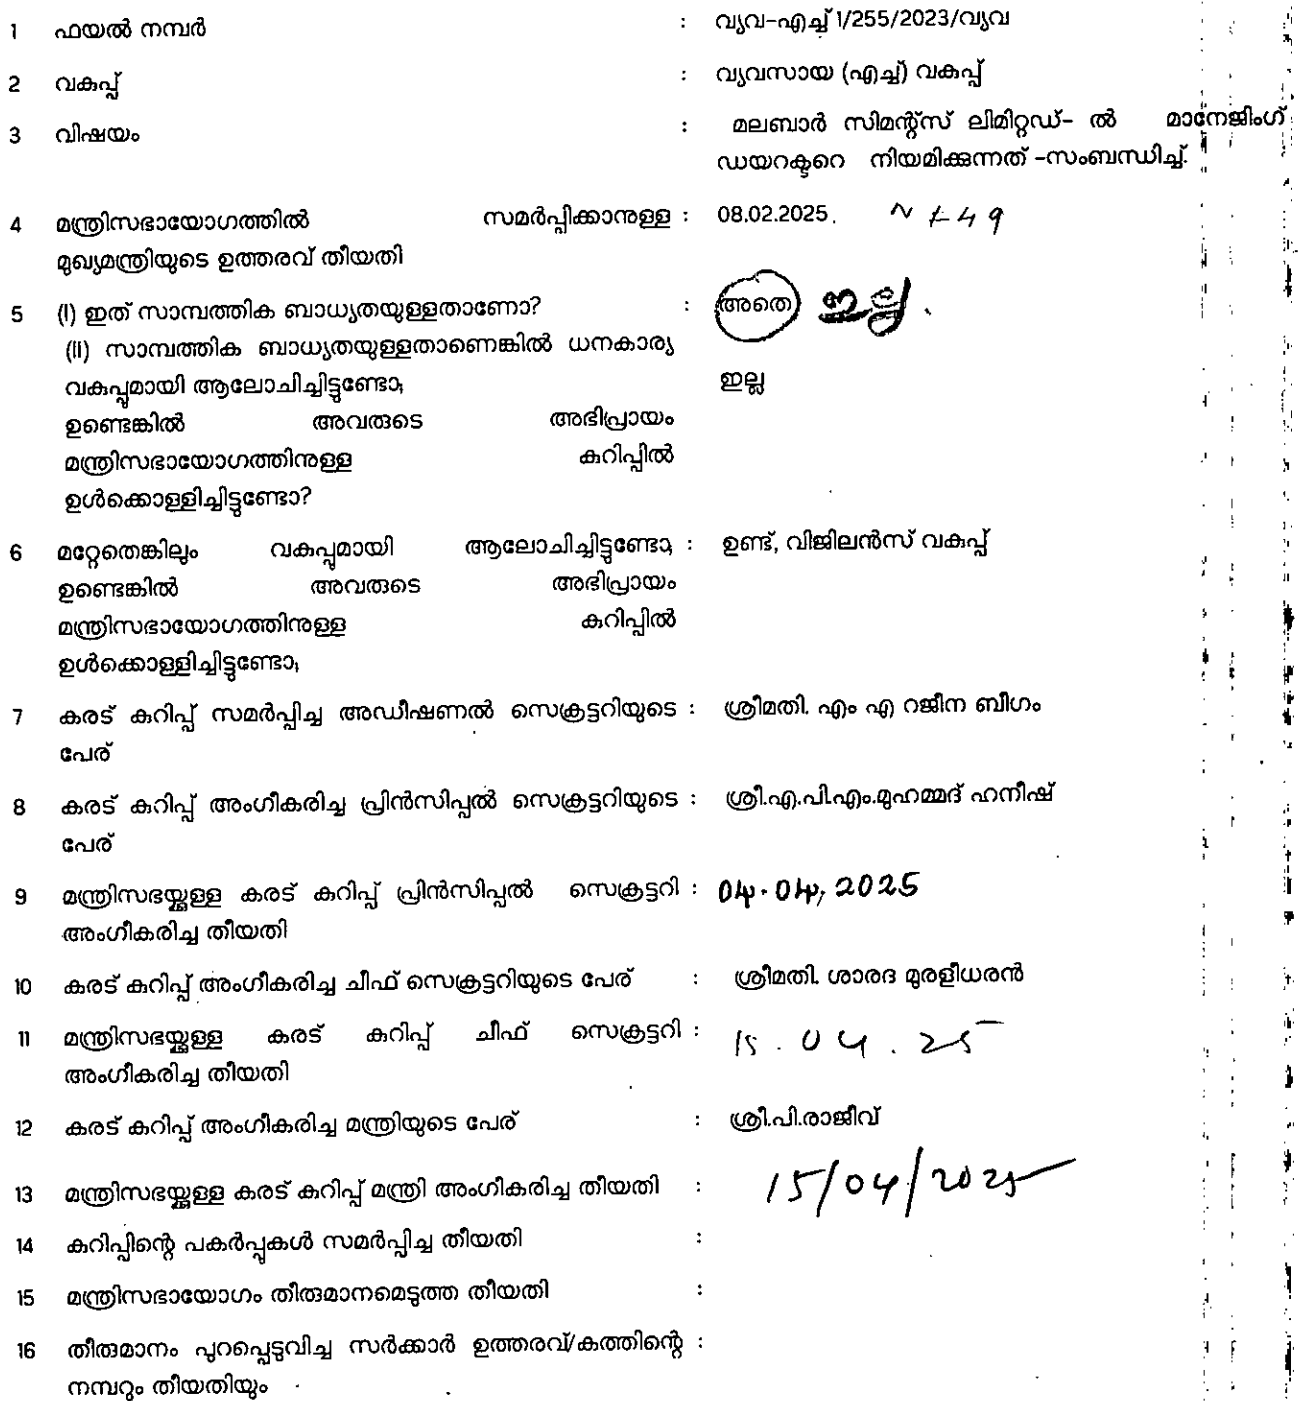 1 ഫയൽ നമ്പർ : വ്യവ-എച്ച് 1/255/2023/വ്യവ
2 വകുപ്പ് : വ്യവസായ (എച്ച്) വകുപ്പ്
3 വിഷയം : മലബാർ സിമന്റ്സ് ലിമിറ്റഡ്- ൽ മാനേജിംഗ്
ഡയറക്ടറെ നിയമിക്കുന്നത് -സംബന്ധിച്ച്.
4 മന്ത്രിസഭായോഗത്തിൽ സമർപ്പിക്കാനുള്ള : 08.02.2025.
മുഖ്യമന്ത്രിയുടെ ഉത്തരവ് തീയതി
5 (I) ഇത് സാമ്പത്തിക ബാധ്യതയുള്ളതാണോ? : അതെ ഇല്ല.
(II) സാമ്പത്തിക ബാധ്യതയുള്ളതാണെങ്കിൽ ധനകാര്യ
വകുപ്പുമായി ആലോചിച്ചിട്ടുണ്ടോ; ഇല്ല
ഉണ്ടെങ്കിൽ അവരുടെ അഭിപ്രായം
മന്ത്രിസഭായോഗത്തിനുള്ള കുറിപ്പിൽ
ഉൾക്കൊള്ളിച്ചിട്ടുണ്ടോ?
6 മറ്റേതെങ്കിലും വകുപ്പുമായി ആലോചിച്ചിട്ടുണ്ടോ; : ഉണ്ട്, വിജിലൻസ് വകുപ്പ്
ഉണ്ടെങ്കിൽ അവരുടെ അഭിപ്രായം
മന്ത്രിസഭായോഗത്തിനുള്ള കുറിപ്പിൽ
ഉൾക്കൊള്ളിച്ചിട്ടുണ്ടോ;
7 കരട് കുറിപ്പ് സമർപ്പിച്ച അഡീഷണൽ സെക്രട്ടറിയുടെ : ശ്രീമതി. എം എ റജീന ബീഗം
പേര്
8 കരട് കുറിപ്പ് അംഗീകരിച്ച പ്രിൻസിപ്പൽ സെക്രട്ടറിയുടെ : ശ്രീ.എ.പി.എം.മുഹമ്മദ് ഹനീഷ്
പേര്
9 മന്ത്രിസഭയ്ക്കുള്ള കരട് കുറിപ്പ് പ്രിൻസിപ്പൽ സെക്രട്ടറി : 04.04.2025
അംഗീകരിച്ച തീയതി
10 കരട് കുറിപ്പ് അംഗീകരിച്ച ചീഫ് സെക്രട്ടറിയുടെ പേര് : ശ്രീമതി. ശാരദ മുരളീധരൻ
11 മന്ത്രിസഭയ്ക്കുള്ള കരട് കുറിപ്പ് ചീഫ് സെക്രട്ടറി : 15.04.25
അംഗീകരിച്ച തീയതി
12 കരട് കുറിപ്പ് അംഗീകരിച്ച മന്ത്രിയുടെ പേര് : ശ്രീ.പി.രാജീവ്
13 മന്ത്രിസഭയ്ക്കുള്ള കരട് കുറിപ്പ് മന്ത്രി അംഗീകരിച്ച തീയതി : 15/04/2025
14 കുറിപ്പിന്റെ പകർപ്പുകൾ സമർപ്പിച്ച തീയതി :
15 മന്ത്രിസഭായോഗം തീരുമാനമെടുത്ത തീയതി :
16 തീരുമാനം പുറപ്പെടുവിച്ച സർക്കാർ ഉത്തരവ്/കത്തിന്റെ :
നമ്പറും തീയതിയും